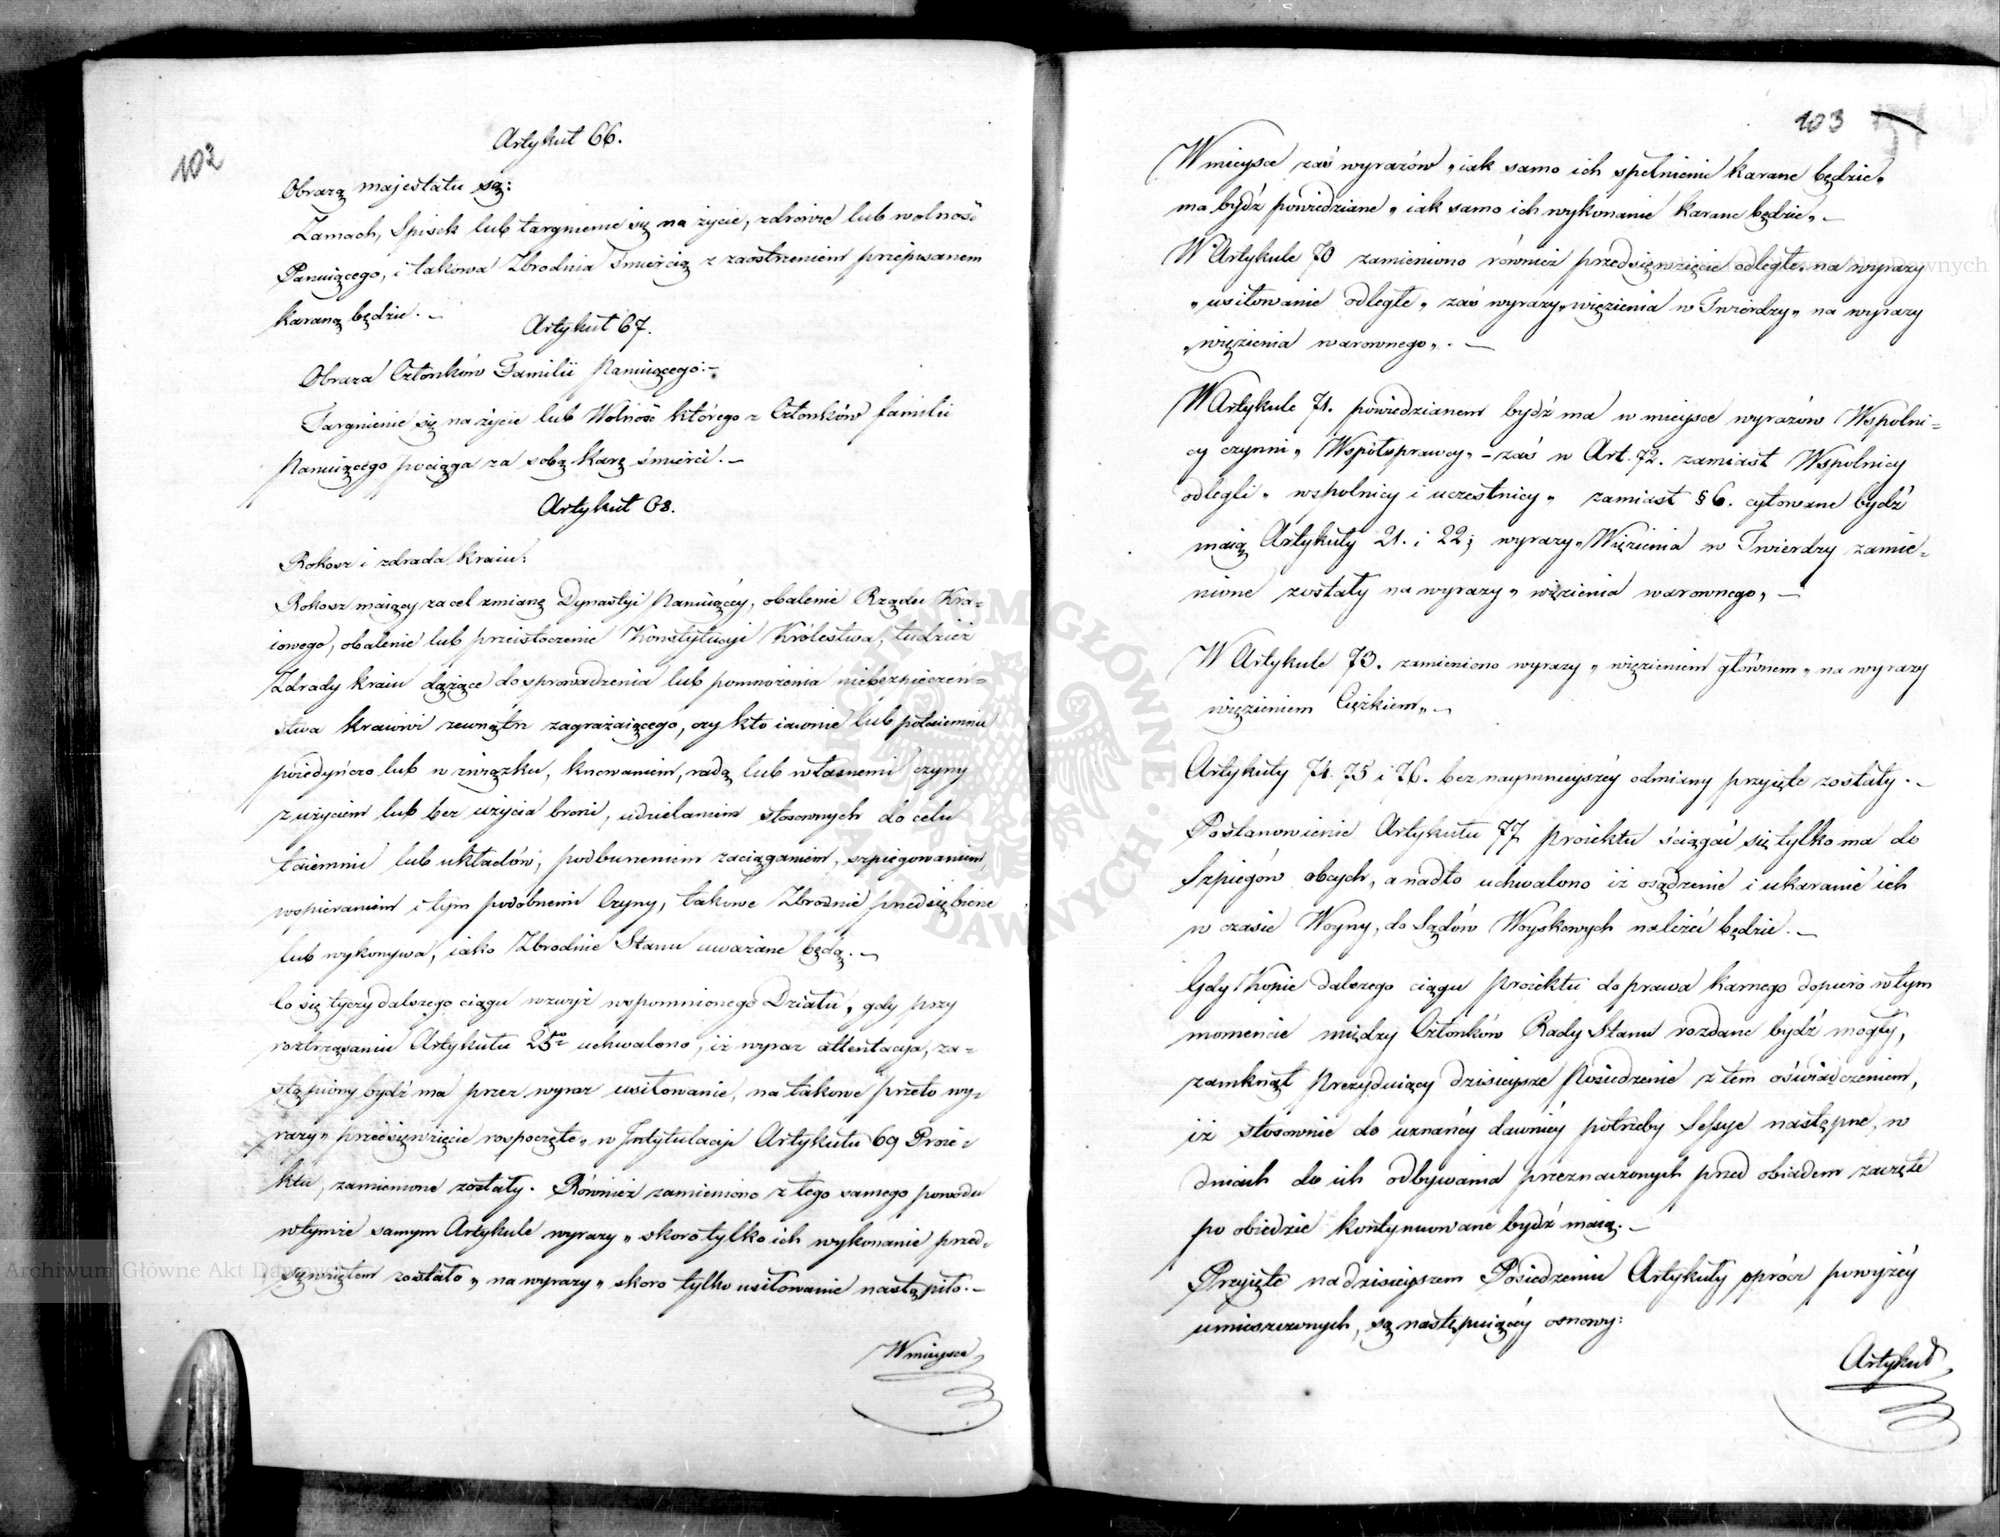 102
Artykuł 66.
Obrazą majestatu są:
Zamach, Spisek lub targnienie się na życie, zdrowie lub wolność
Panuiącego, i takowa Zbrodnia śmiercią z zaostrzeniem przepisanem
karaną będzie. –
Artykuł 67.
Obraza Członków Familii Panuiącego: –
Targnienie się na życie lub Wolność którego z Członków familii
Panuiącego pociąga za sobą karę śmierci. –
Artykuł 68.
Rokosz i zdrada kraiu:
Rokosz maiący za cel zmianę Dynastyi Panuiącey, obalenie Rządu Kra=
iowego, obalenie lub przeistoczenie Konstytucyi Królestwa, tudzież
Zdrady kraiu dążące do sprowadzenia lub pomnożenia niebezpieczeń=
stwa kraiowi zewnątrz zagrażaiącego, czy kto iawnie lub potaiemnie
poiedyńczo lub w związku, knowaniem, radą lub własnemi czyny
z użyciem lub bez użycia broni, udzielaniem stosownych do celu
taiemnic lub układów, podburzeniem zaciąganiem, szpiegowaniem,
wspieraniem i tym podobnemi Czyny, takowe Zbrodnie przedsiębierze
lub wykonywa, iako Zbrodnie Stanu uważane będą. –
Co się tyczy dalszego ciągu wzwyż wspomnionego Działu, gdy przy
roztrząsaniu Artykułu 25go uchwalono, iż wyraz attentacya, za=
stąpiony bydź ma przez wyraz usiłowanie, na takowe przeto wy=
razy „przedsięwzięcie rozpoczęte„ w Intytulacyi Artykułu 69 Proie=
ktu, zamienione zostały. Również zamieniono z tego samego powodu
w tymże samym Artykule wyrazy „skoro tylko ich wykonanie przed=
sięwziętem zostało„ na wyrazy „skoro tylko usiłowanie nastąpiło. –
W mieysce
103
W mieysce zaś wyrazów „iak samo ich spełnienie karane będzie„
ma bydź powiedziane „iak samo ich wykonanie karane będzie„. –
W Artykule 70 zamieniono również przedsięwzięcie odległe, na wyrazy
„usiłowanie odległe„ zaś wyrazy „więzienia w Twierdzy„ na wyrazy
„więzienia warownego„. –
W Artykule 71. powiedzianem bydź ma w mieysce wyrazów Wspólni=
cy czynni„ Współsprawcy„ – zaś w Art. 72. zamiast Wspolnicy
odlegli „wspolnicy i uczestnicy„ zamiast § 6. cytowane bydź
maią Artykuły 21. i 22; wyrazy „Więzienia w Twierdzy zamie=
nione zostały na wyrazy „więzienia warownego„ –
W Artykule 73. zamieniono wyrazy „więzieniem głównem„ na wyrazy
więzieniem Ciężkiem„ –
Artykuły 74. 75 i 76. bez naymnieyszéy odmiany przyięte zostały. –
Postanowienie Artykułu 77 proiektu ściągać się tylko ma do
Szpiegów obcych, a nadto uchwalono iż osądzenie i ukaranie ich
w czasie Woyny, do Sądów Woyskowych należéć będzie. –
Gdy Kopie dalszego ciągu proiektu do prawa karnego dopiero w tym
momencie między Członków Rady Stanu rozdane bydź mogły,
zamknął Prezyduiący dzisieysze Posiedzenie z tem oświadczeniem,
iż stosownie do uznanéy dawniéy potrzeby Sessye następne, w
dniach do ich odbywania przeznaczonych przed obiadem zaczęte
po obiedzie kontynuowane bydź maią. –
Przyięte na dzisieyszem Posiedzeniu Artykuły oprócz powyżéy
umieszczonych, są następuiącéy osnowy:
Artykuł
Archiwum Główne Akt Dawnych